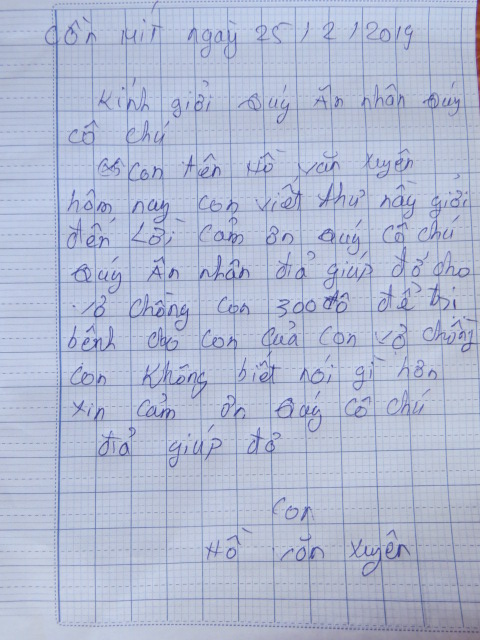 Cồn Mít ngày 25/2/2019
Kính giởi Quý Ân nhân Quý
cô chú
Con tên Hồ văn Xuyên
hôm nay con viết thư nầy giởi
đến Lời Cảm ơn Quý cô chú
Quý Ân nhân điả giúp đở cho
vở chồng con 300 đô để trị
bệnh cho con của con vở chồng
con Không biết nói gì hơn
xin Cảm ơn Quý Cô chú
điả giúp đở
Con
Hồ văn Xuyên